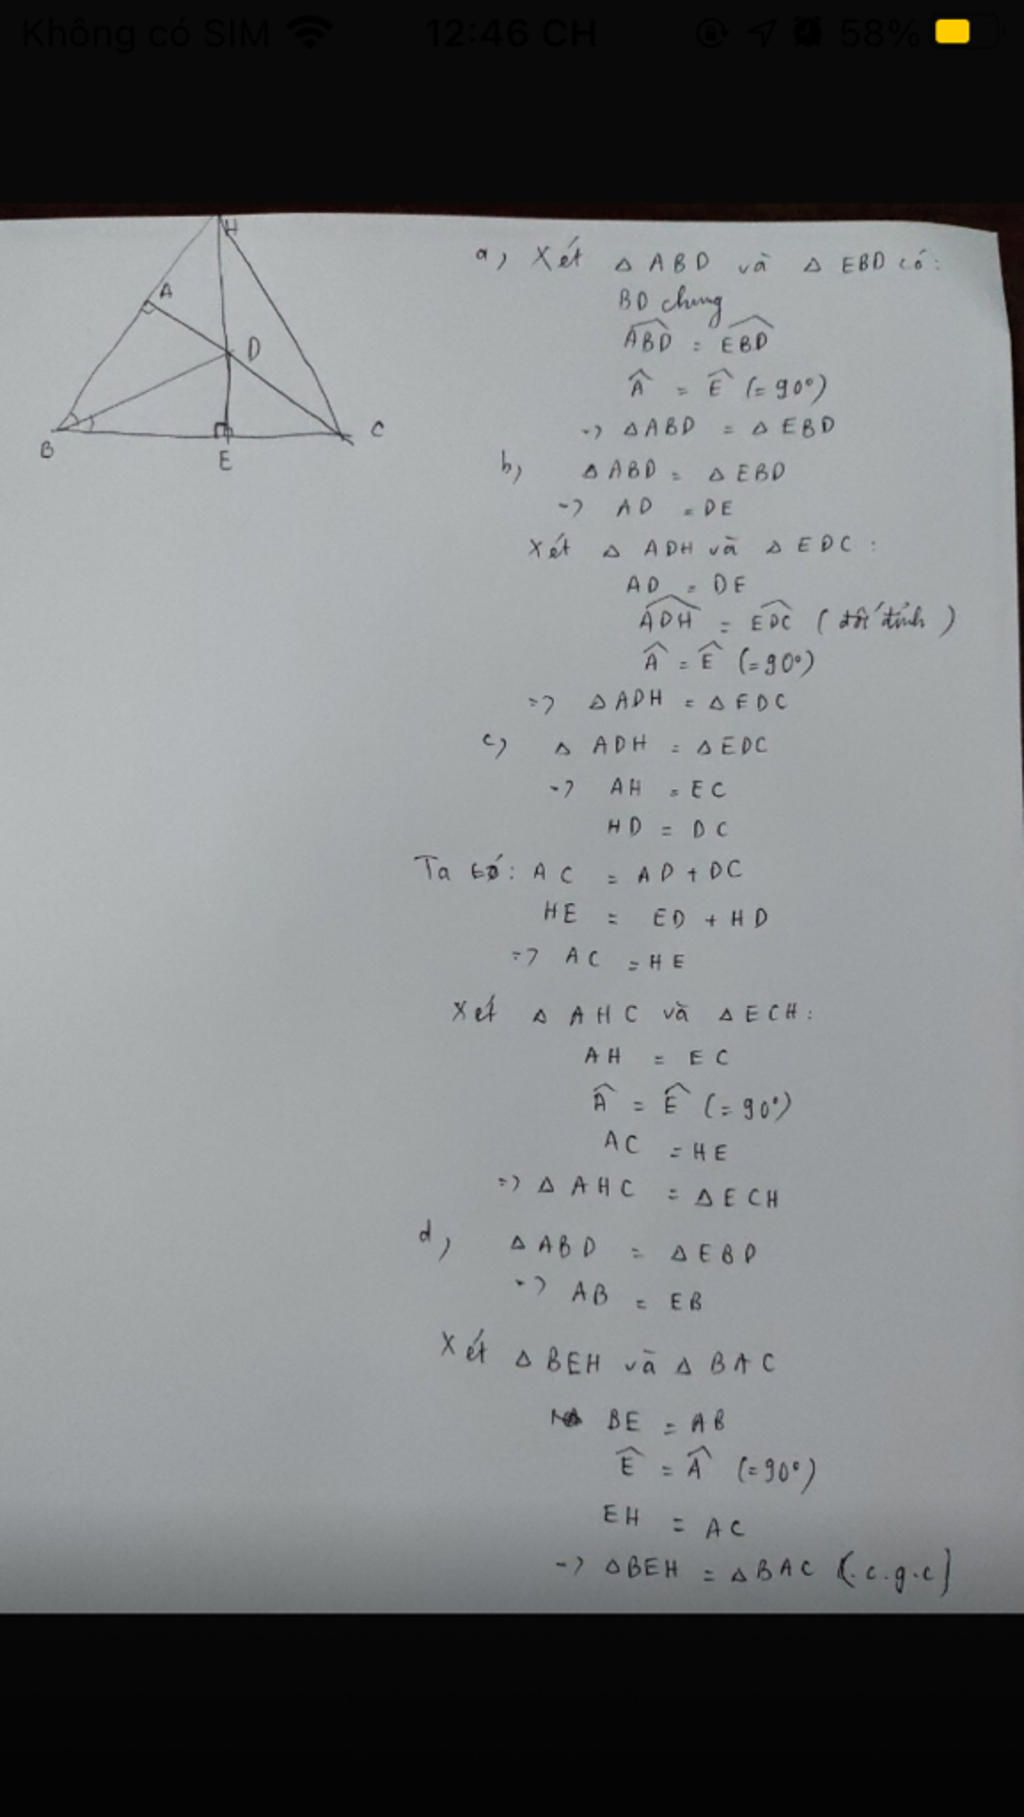 Không có SIM 12:46 CH 58%
H
A
D
B
E
C
a, Xét △ ABD và △ EBD có:
BD chung
ABD = EBD
Â = Ê (= 90°)
-> △ABD = △ EBD
b, △ ABD = △ EBD
-> AD = DE
Xét △ ADH và △ EDC :
AD = DE
ADH = EDC ( đối đỉnh )
Â = Ê (= 90°)
=> △ADH = △ EDC
c, △ ADH = △ EDC
-> AH = EC
HD = DC
Ta có: AC = AD + DC
HE = ED + HD
=> AC = HE
Xét △ AHC và △ ECH:
AH = EC
Â = Ê (= 90°)
AC = HE
=> △ AHC = △ ECH
d, △ ABD = △ EBD
-> AB = EB
Xét △ BEH và △ BAC
BE = AB
Ê = Â (= 90°)
EH = AC
-> △BEH = △BAC (.c.g.c)